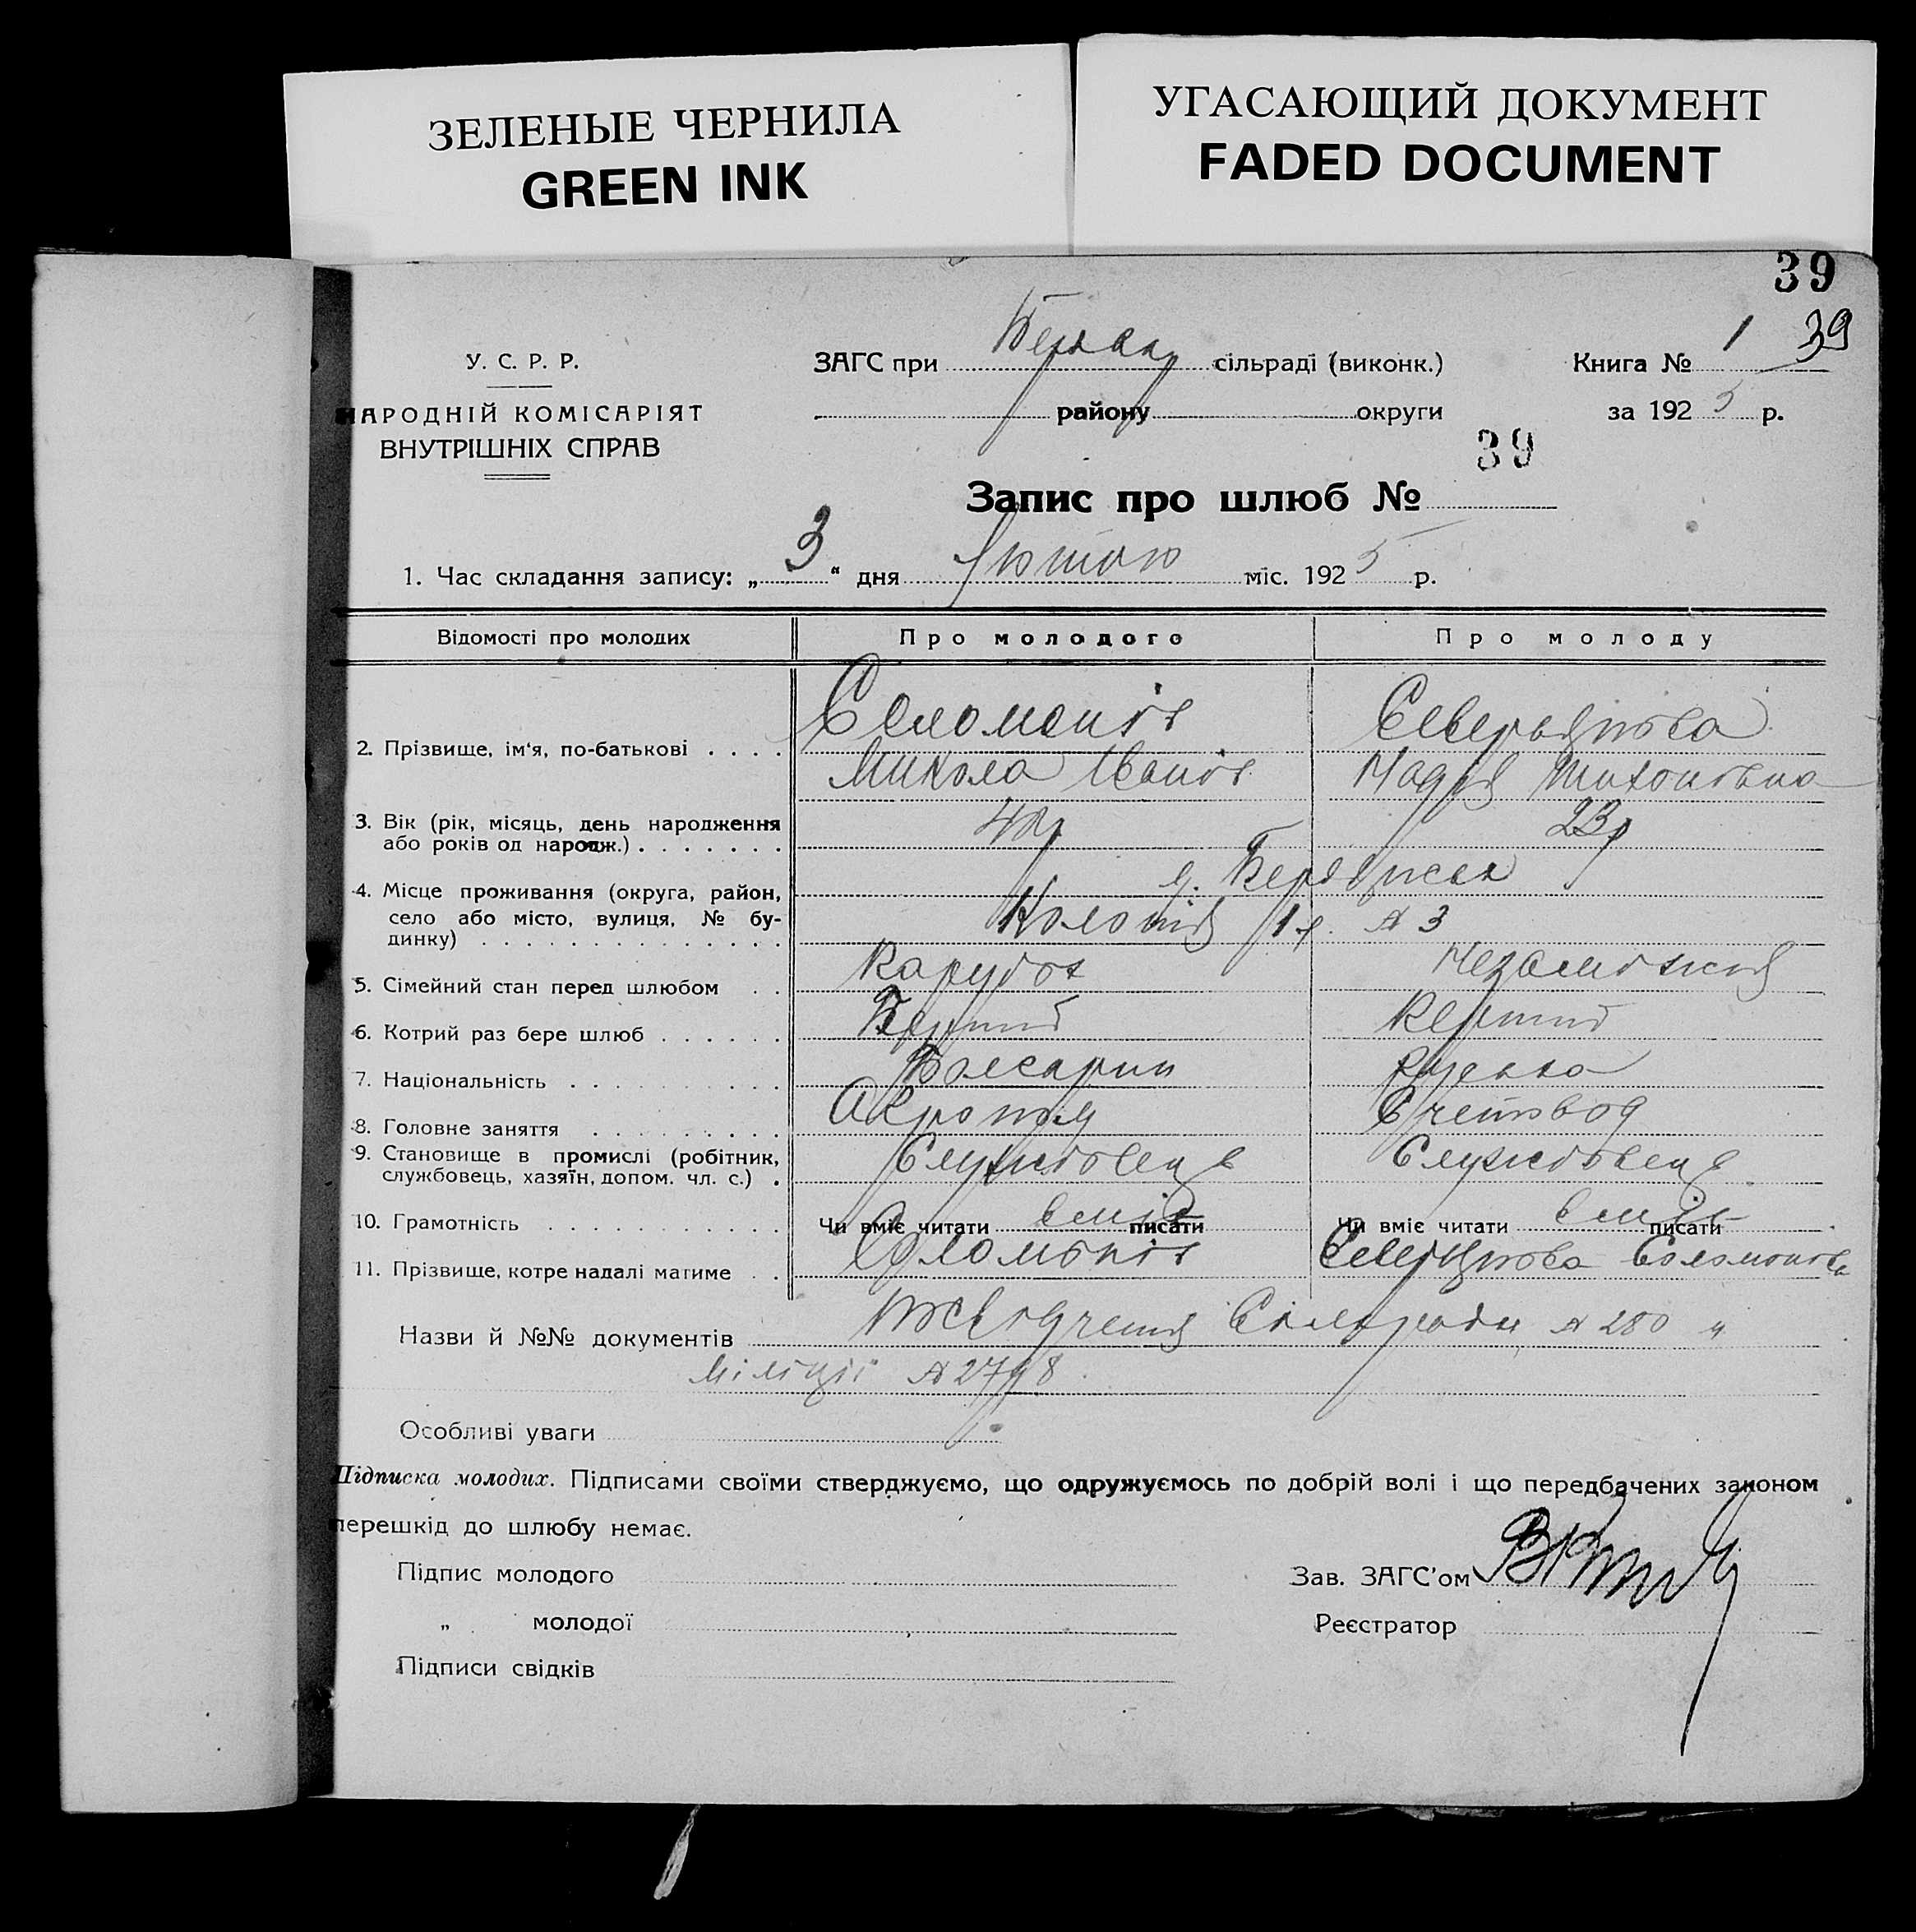 ЗЕЛЕНЫЕ ЧЕРНИЛА
GREEN INK
УГАСАЮЩИЙ ДОКУМЕНТ
FADED DOCUMENT
39
У. С. Р. Р.
НАРОДНІЙ КОМІСАРІЯТ
ВНУТРІШНІХ СПРАВ
ЗАГС при сільраді (виконк.)
району округи
Книга № 1 39
за 1925 р.
39
Запис про шлюб №
1. Час складання запису: „ 3 “ дня Лютого міс. 1925 р.
Відомості про молодих Про молодого Про молоду
2. Прізвище, ім‘я, по-батькові . . . . Соломонів Северьянова
Микола Іванів Надія Тихоновна
3. Вік (рік, місяць, день народження
або років од народж.) . . . . . . . 23р
4. Місце проживання (округа, район,
село або місто, вулиця, № бу-
динку) . . . . . . . . . . . . . . Колонія № 3
5. Сімейний стан перед шлюбом . . Парубок Незаміжня
6. Котрий раз бере шлюб . . . . . . Перший Перший
7. Національність . . . . . . . . . . Болгарин Руська
8. Головне заняття . . . . . . . . . Агроном Счетовод
9. Становище в промислі (робітник,
службовець, хазяїн, допом. чл. с.) . Службовець Службовець
10. Грамотність . . . . . . . . . . . Чи вміє читати вміє писати Чи вміє читати вміє писати
11. Прізвище, котре надалі матиме . . Соломонів Северьянова Соломонова
Назви й №№ документів Посвідчення Сільради № 280 и
Міліції №
Особливі уваги
Підписка молодих. Підписами своїми стверджуємо, що одружуємось по добрій волі і що передбачених законом
перешкід до шлюбу немає.
Підпис молодого
„ молодої
Підписи свідків
Зав. ЗАГС’ом
Реєстратор